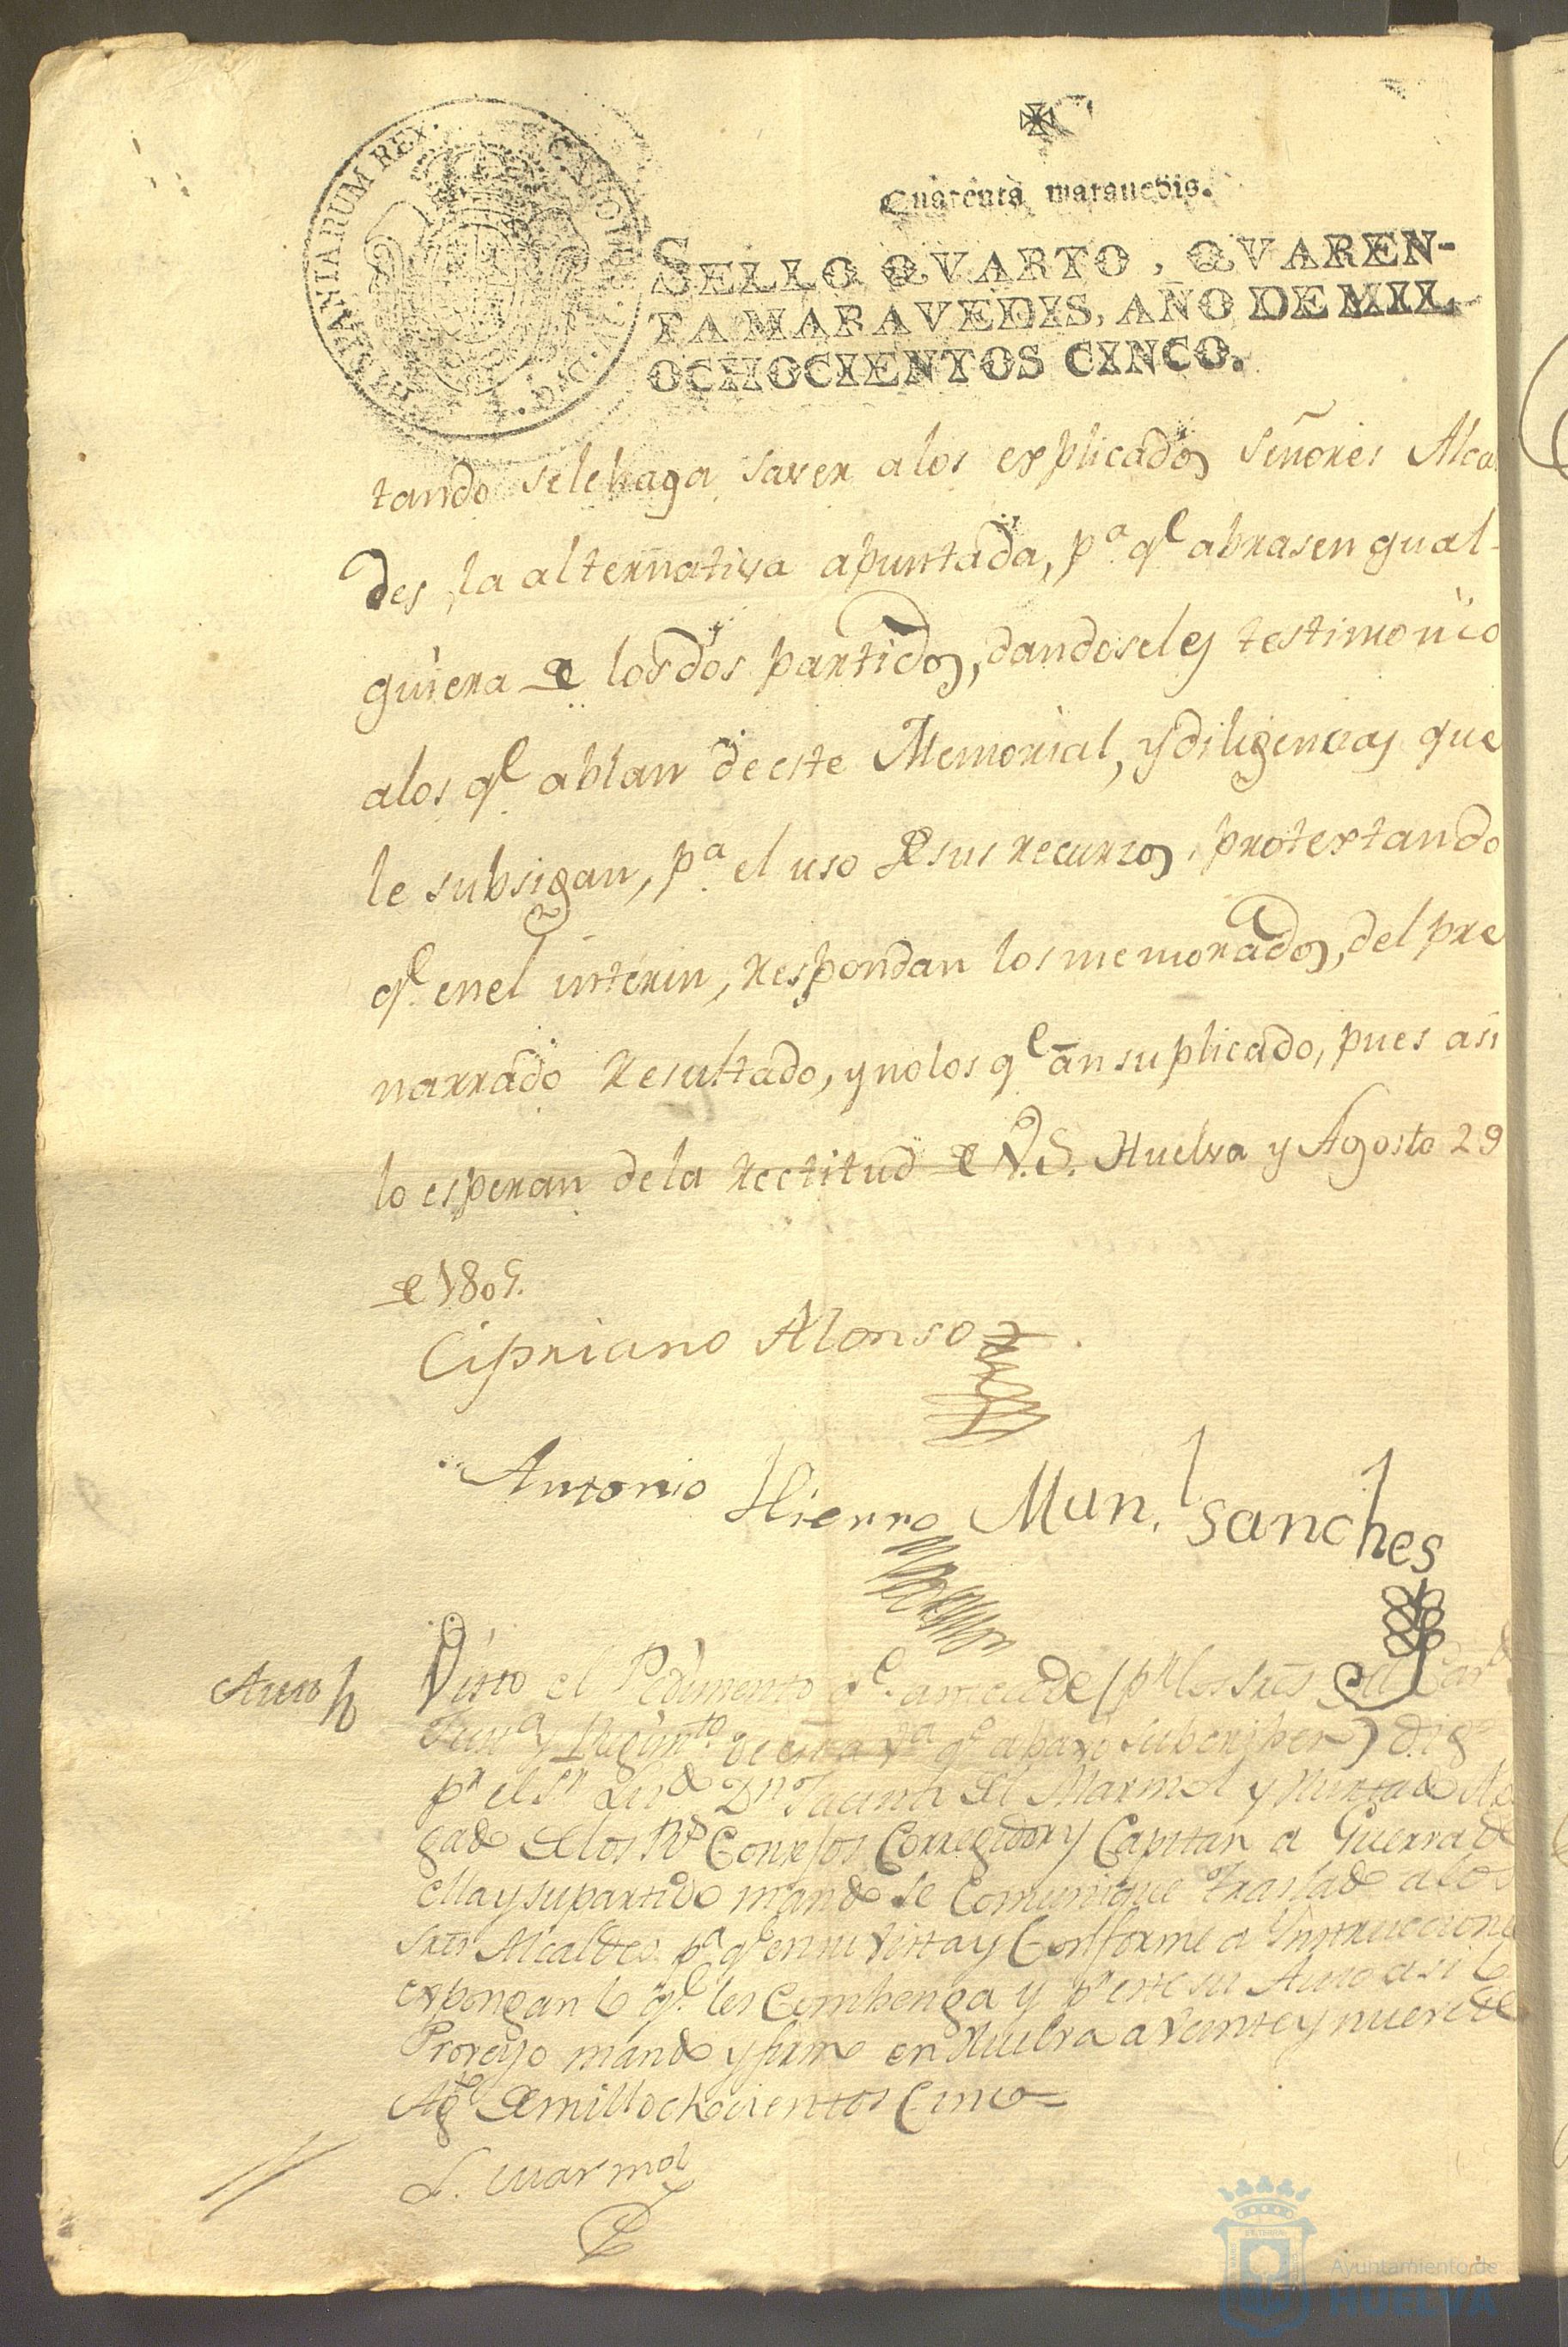 HISPANIARUM REX. CAROLUS IV. D. G.
Quarenta marauedis.
SELLO QVARTO, QVAREN-
TA MARAVEDIS, AÑO DE MIL
OCHOCIENTOS CINCO.
tando sele haga saver alos explicados Señores Alcal
des, la alternativa apuntada, pa. qe. abrasen qual-
quiera de los dos partidos, dandoseles testimonio
alos qe. ablan de este Memorial, y diligencias que
le subsigan, pa. el uso de sus recurzos, protextando
qe. enel interin, respondan los memorados, del pre
narrado resultado, y no los qe. an suplicado, pues asi
lo esperan dela rectitud de V.S. Huelva y Agosto 29
de 1805.
Cipriano Alonso
Antonio Hierro Manl. Sanches
Auto Visto el Pedimento qe. antecede (pr. los sres. del
y Regimto. de esta va. qe. abaxo subcriben) Digo
pr. el Sr. Licdo. Dn. Jacinto del Marmol y Abo
gado de los Rs. Consejos Corregidor y Capitan a Guerra de
ella y su partido mando se Comunique traslado alos
sres. Alcaldes pa. qe. en su vista y Conforme a Instrucciones
expongan lo qe. les Combenga y pr. este su Auto asi lo
Proveyo mando y firmo en Huelva a veinte y nueve de
Agto. de mill ochocientos Cinco=
L. Marmol
Ayuntamiento de
HUELVA